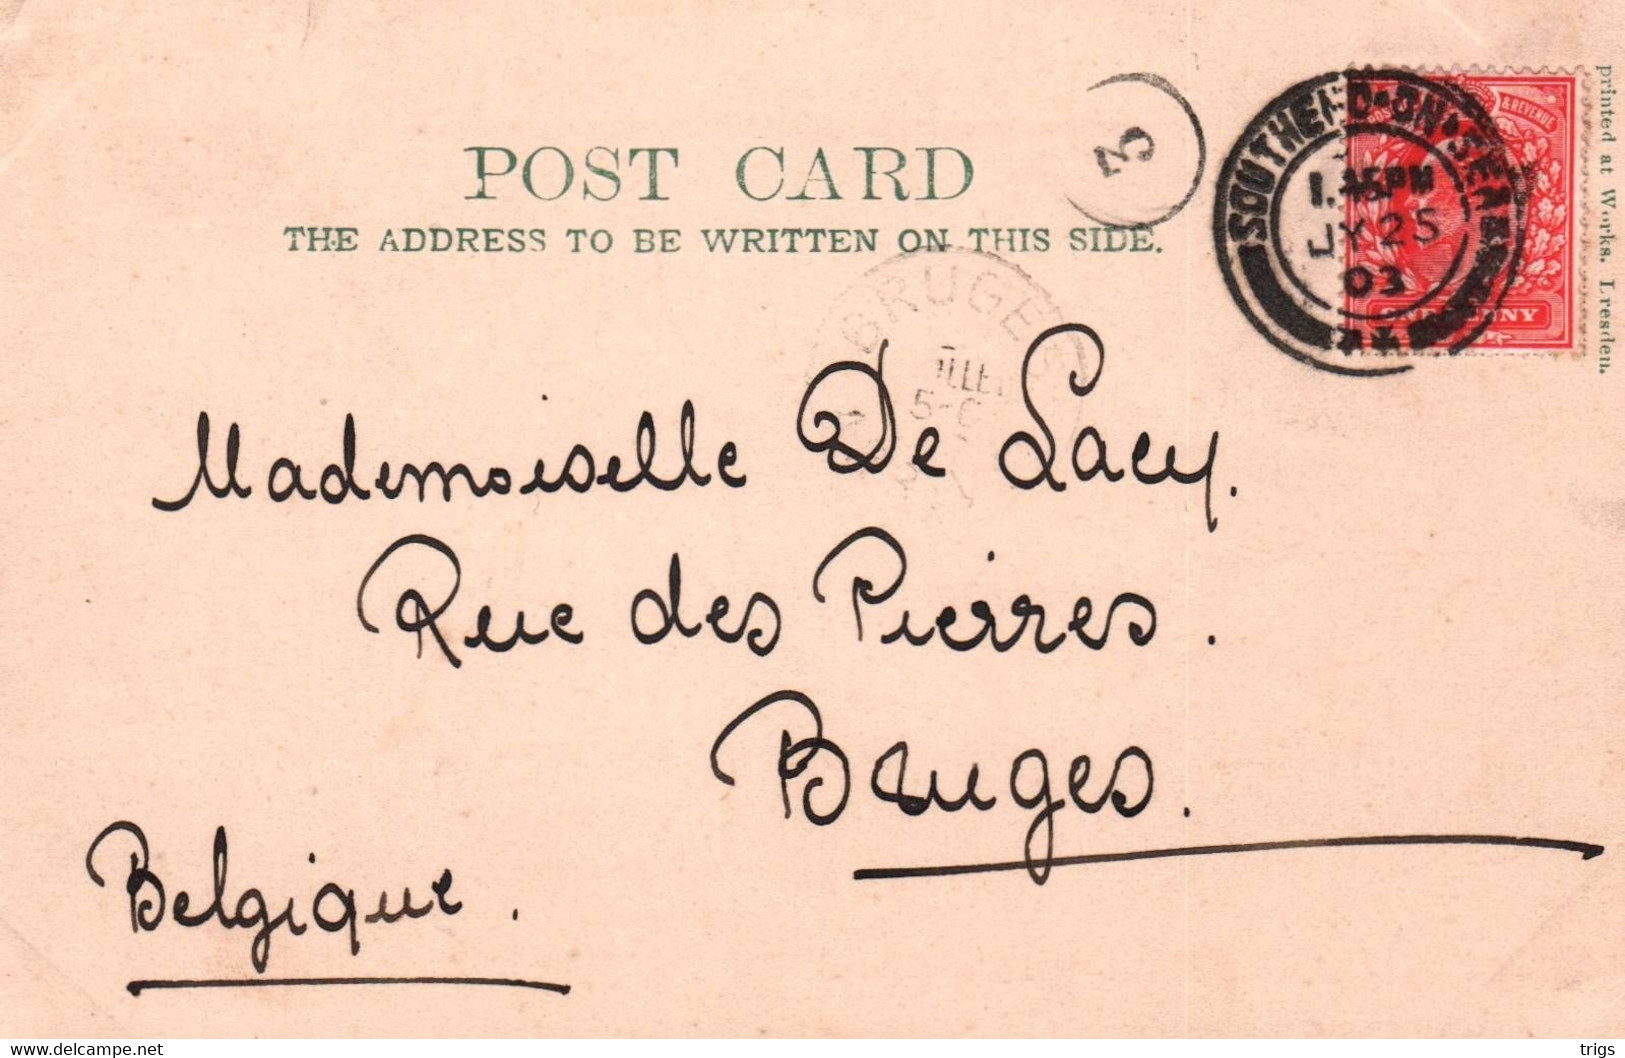 POST CARD
THE ADDRESS TO BE WRITTEN ON THIS SIDE.
3
SOUTHEND-ON-SEA
1.45PM
JY 25
03
& REVENUE
ONE PENNY
printed at Works. Dresden.
BRUGES
Mademoiselle De Lacy.
Rue des Pierres.
Bruges.
Belgique.
delcampe.net
trigs